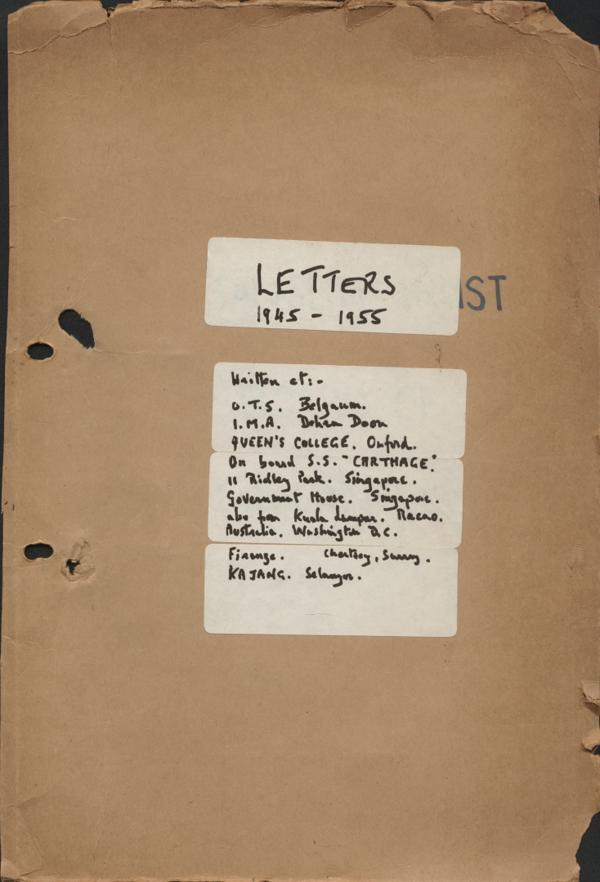 LETTERS
IST
1945 - 1955
Written at:-
O.T.S. Belgaum.
I.M.A. Dehra Doon
QUEEN'S COLLEGE. Oxford.
On board S.S. "CARTHAGE".
11 Ridley Park. Singapore.
Government House. Singapore.
also from Kuala Lumpur. Macao.
Australia. Washington D.C.
Firenze. Chertsey, Surrey.
KAJANG. Selangor.